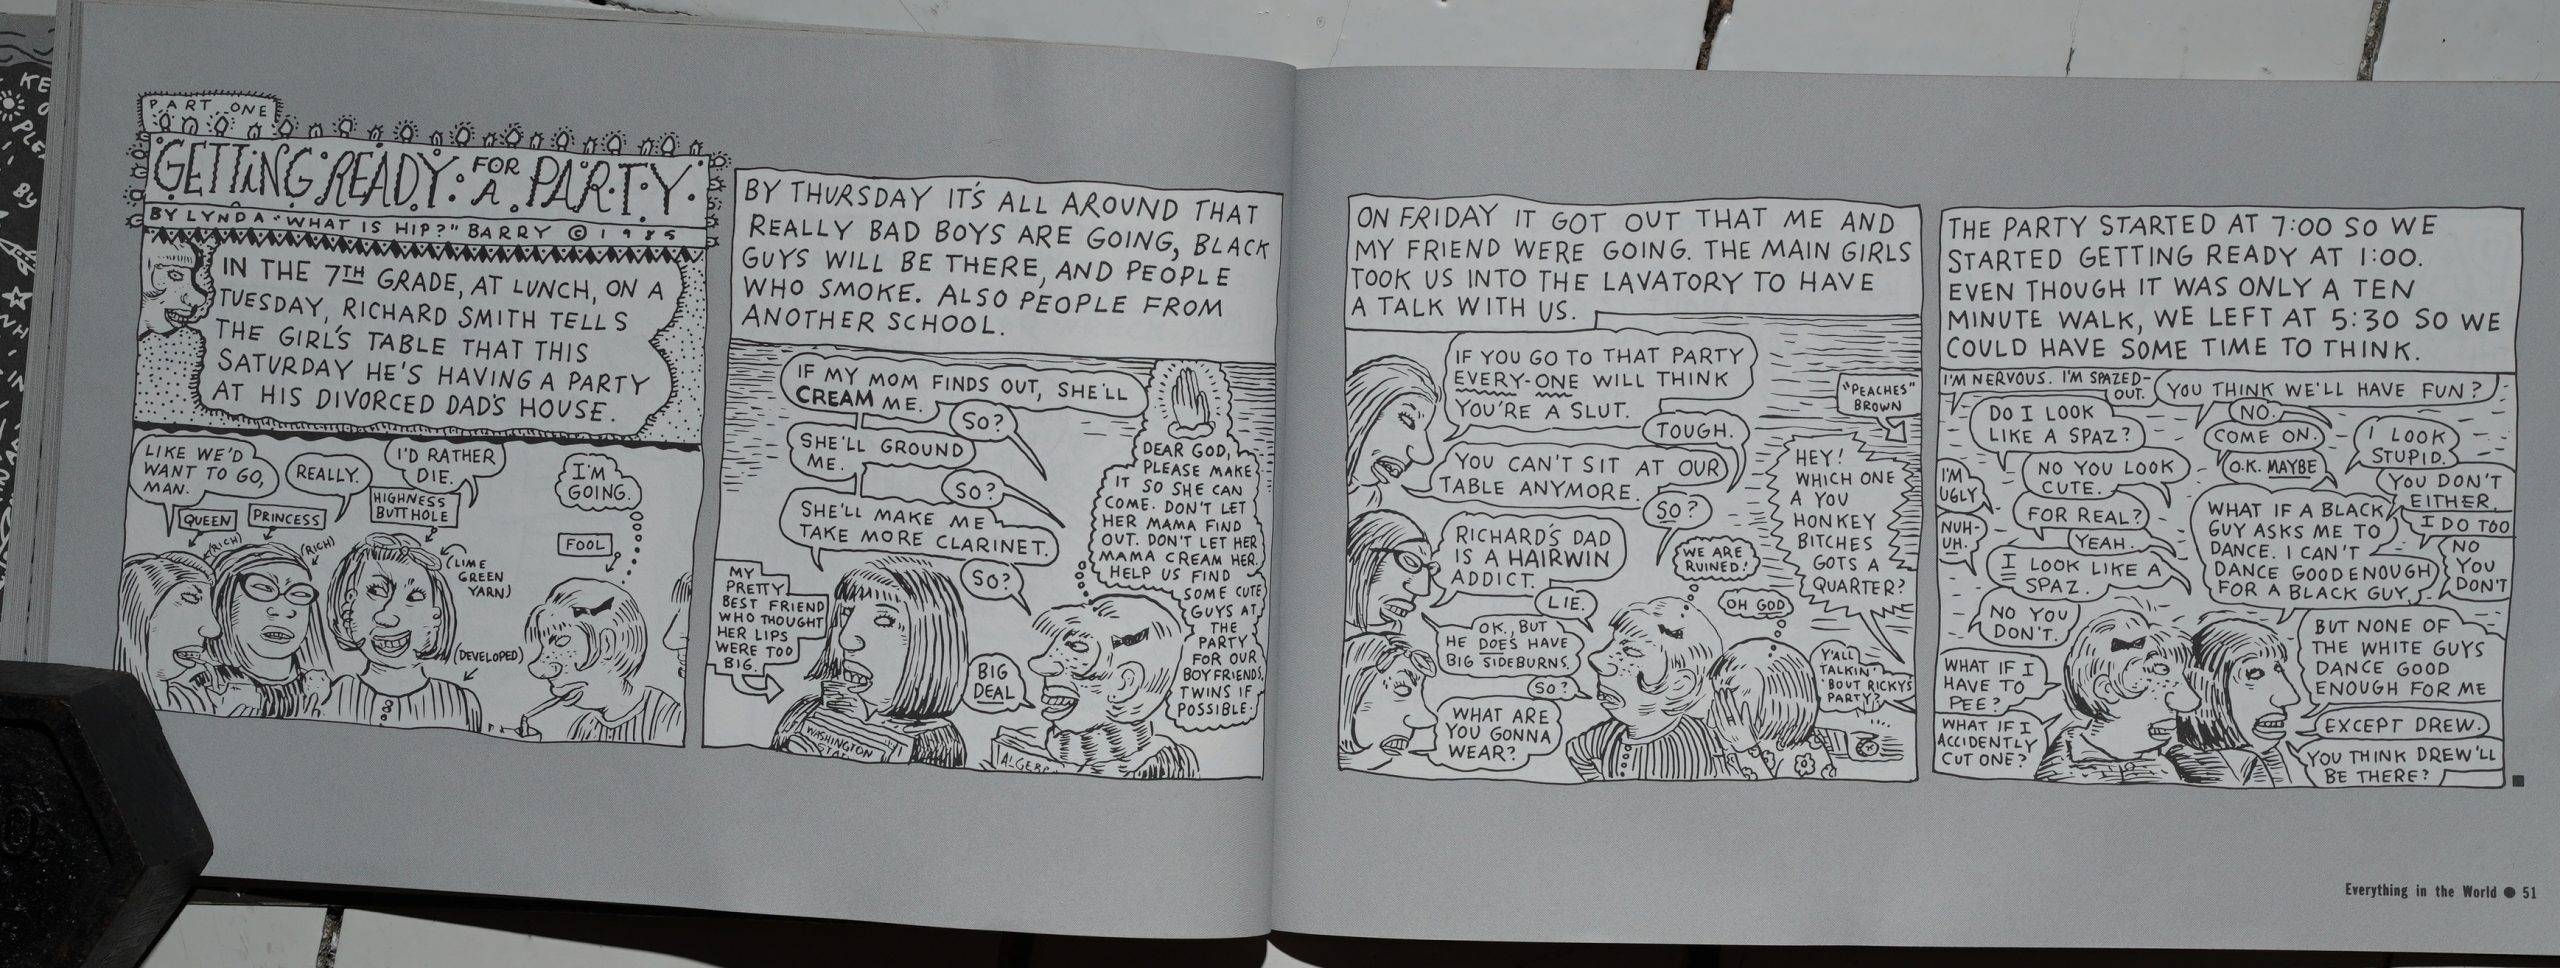 PART ONE
GETTING READY FOR A PARTY
BY LYNDA "WHAT IS HIP?" BARRY © 1985
IN THE 7TH GRADE, AT LUNCH, ON A
TUESDAY, RICHARD SMITH TELLS
THE GIRL'S TABLE THAT THIS
SATURDAY HE'S HAVING A PARTY
AT HIS DIVORCED DAD'S HOUSE.
LIKE WE'D
WANT TO GO,
MAN.
REALLY.
I'D RATHER
DIE.
I'M
GOING.
QUEEN
(RICH)
PRINCESS
(RICH)
HIGHNESS
BUTTHOLE
(LIME
GREEN
YARN)
(DEVELOPED)
FOOL
BY THURSDAY IT'S ALL AROUND THAT
REALLY BAD BOYS ARE GOING, BLACK
GUYS WILL BE THERE, AND PEOPLE
WHO SMOKE. ALSO PEOPLE FROM
ANOTHER SCHOOL.
IF MY MOM FINDS OUT, SHE'LL
CREAM ME.
SO?
SHE'LL GROUND
ME.
SO?
SHE'LL MAKE ME
TAKE MORE CLARINET.
SO?
MY
PRETTY
BEST FRIEND
WHO THOUGHT
HER LIPS
WERE TOO
BIG.
BIG
DEAL
DEAR GOD,
PLEASE MAKE
IT SO SHE CAN
COME. DON'T LET
HER MAMA FIND
OUT. DON'T LET HER
MAMA CREAM HER.
HELP US FIND
SOME CUTE
GUYS AT
THE
PARTY
FOR OUR
BOYFRIENDS,
TWINS IF
POSSIBLE.
WASHINGTON
ON FRIDAY IT GOT OUT THAT ME AND
MY FRIEND WERE GOING. THE MAIN GIRLS
TOOK US INTO THE LAVATORY TO HAVE
A TALK WITH US.
IF YOU GO TO THAT PARTY
EVERY-ONE WILL THINK
YOU'RE A SLUT.
TOUGH.
YOU CAN'T SIT AT OUR
TABLE ANYMORE.
SO?
RICHARD'S DAD
IS A HAIRWIN
ADDICT.
LIE.
OK, BUT
HE DOES HAVE
BIG SIDEBURNS.
SO?
WHAT ARE
YOU GONNA
WEAR?
WE ARE
RUINED!
OH GOD
"PEACHES"
BROWN
HEY!
WHICH ONE
A YOU
HONKEY
BITCHES
GOTS A
QUARTER?
Y'ALL
TALKIN'
'BOUT RICKYS
PARTY?
THE PARTY STARTED AT 7:00 SO WE
STARTED GETTING READY AT 1:00.
EVEN THOUGH IT WAS ONLY A TEN
MINUTE WALK, WE LEFT AT 5:30 SO WE
COULD HAVE SOME TIME TO THINK.
I'M NERVOUS. I'M SPAZED-
OUT.
YOU THINK WE'LL HAVE FUN?
NO.
COME ON.
O.K. MAYBE
DO I LOOK
LIKE A SPAZ?
NO YOU LOOK
CUTE.
FOR REAL?
YEAH.
I LOOK LIKE A
SPAZ.
NO YOU
DON'T.
I'M
UGLY
NUH-
UH.
I LOOK
STUPID.
YOU DON'T
EITHER.
I DO TOO
NO
YOU
DON'T
WHAT IF A BLACK
GUY ASKS ME TO
DANCE. I CAN'T
DANCE GOOD ENOUGH
FOR A BLACK GUY.
WHAT IF I
HAVE TO
PEE?
WHAT IF I
ACCIDENTLY
CUT ONE?
BUT NONE OF
THE WHITE GUYS
DANCE GOOD
ENOUGH FOR ME
EXCEPT DREW.
YOU THINK DREW'LL
BE THERE?
Everything in the World ● 51